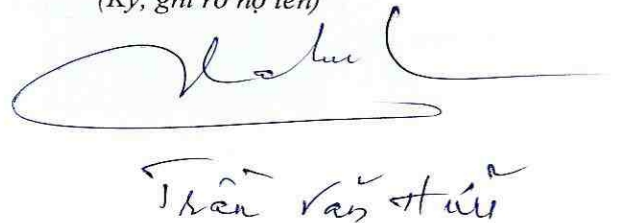 (Ký, ghi rõ họ tên)
Trần Văn Hữu